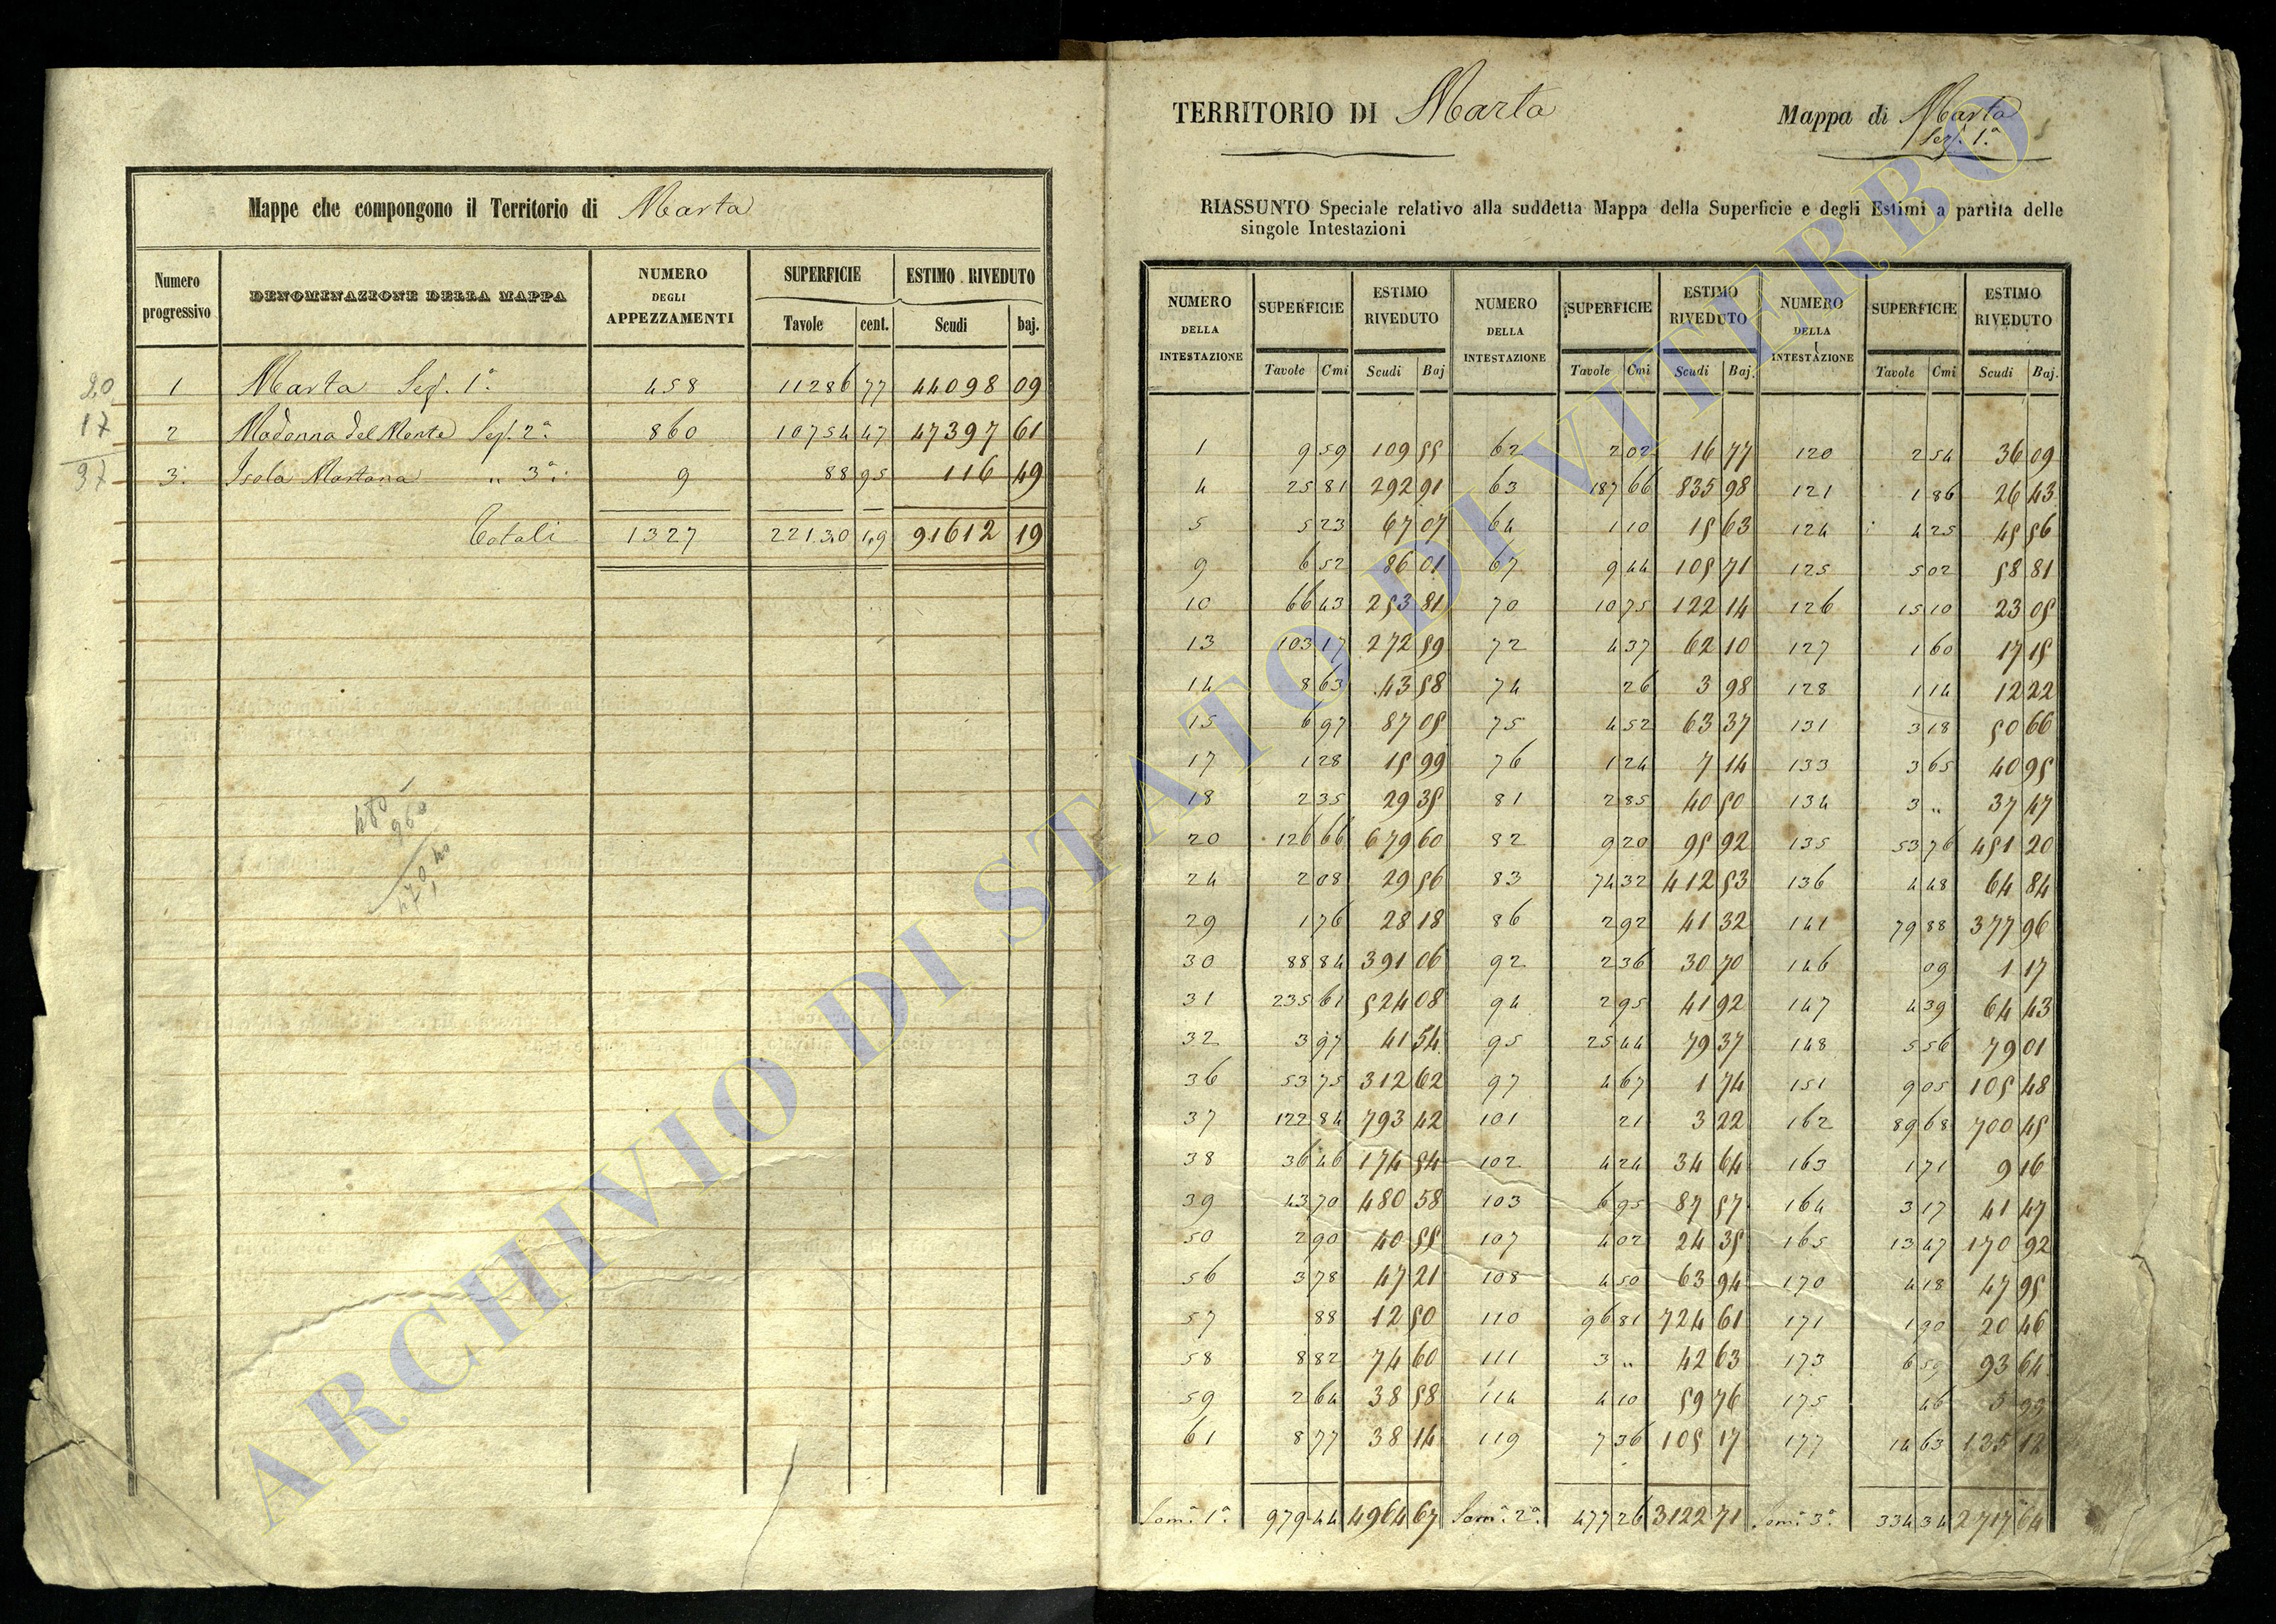 Mappe che compongono il Territorio di Marta
Numero progressivo | DENOMINAZIONE DELLA MAPPA | NUMERO DEGLI APPEZZAMENTI | SUPERFICIE | ESTIMO RIVEDUTO
Tavole | cent. | Scudi | baj.
20
1 | Marta Sez. 1ª | 458 | 11286 | 77 | 44098 | 09
17
2 | Madonna del Monte Sez. 2ª | 860 | 10754 | 47 | 47397 | 61
37
3 | Isola Martana " 3ª | 9 | 88 | 95 | 116 | 49
Totali | 1327 | 22130 | 19 | 91612 | 19
480
960
TERRITORIO DI Marta
Mappa di Marta
Sez. 1ª
RIASSUNTO Speciale relativo alla suddetta Mappa della Superficie e degli Estimi a partita delle
singole Intestazioni
NUMERO DELLA INTESTAZIONE | SUPERFICIE | ESTIMO RIVEDUTO | NUMERO DELLA INTESTAZIONE | SUPERFICIE | ESTIMO RIVEDUTO | NUMERO DELLA INTESTAZIONE | SUPERFICIE | ESTIMO RIVEDUTO
Tavole | Cmi | Scudi | Baj | Tavole | Cmi | Scudi | Baj. | Tavole | Cmi | Scudi | Baj.
1 | 9 | 59 | 109 | 55 | 62 | 2 | 02 | 16 | 77 | 120 | 2 | 54 | 36 | 09
4 | 25 | 81 | 292 | 91 | 63 | 187 | 66 | 835 | 98 | 121 | 1 | 86 | 26 | 43
5 | 5 | 23 | 67 | 07 | 64 | 1 | 10 | 15 | 63 | 124 | 4 | 25 | 45 | 56
9 | 6 | 52 | 86 | 01 | 67 | 9 | 44 | 105 | 71 | 125 | 5 | 02 | 58 | 81
10 | 66 | 43 | 253 | 81 | 70 | 10 | 75 | 122 | 14 | 126 | 15 | 10 | 23 | 05
13 | 103 | 17 | 272 | 59 | 72 | 4 | 37 | 62 | 10 | 127 | 1 | 60 | 17 | 15
14 | 8 | 63 | 43 | 58 | 74 | 26 | 3 | 98 | 128 | 1 | 14 | 12 | 22
15 | 6 | 97 | 87 | 05 | 75 | 4 | 52 | 63 | 37 | 131 | 3 | 18 | 50 | 66
17 | 1 | 28 | 15 | 99 | 76 | 1 | 24 | 7 | 14 | 133 | 3 | 65 | 40 | 95
18 | 2 | 35 | 29 | 35 | 81 | 2 | 85 | 40 | 50 | 134 | 3 | " | 37 | 47
20 | 126 | 66 | 679 | 60 | 82 | 9 | 20 | 95 | 92 | 135 | 53 | 76 | 451 | 20
24 | 2 | 08 | 29 | 56 | 83 | 74 | 32 | 412 | 53 | 136 | 4 | 48 | 64 | 84
29 | 1 | 76 | 28 | 18 | 86 | 2 | 92 | 41 | 32 | 141 | 79 | 88 | 377 | 96
30 | 88 | 84 | 391 | 06 | 92 | 2 | 36 | 30 | 70 | 146 | 09 | 1 | 17
31 | 235 | 61 | 524 | 08 | 94 | 2 | 95 | 41 | 92 | 147 | 4 | 39 | 64 | 43
32 | 3 | 97 | 41 | 54 | 95 | 25 | 44 | 79 | 37 | 148 | 5 | 56 | 79 | 01
36 | 53 | 75 | 312 | 62 | 97 | 4 | 67 | 1 | 74 | 151 | 9 | 05 | 105 | 48
37 | 122 | 84 | 793 | 42 | 101 | 21 | 3 | 22 | 162 | 89 | 68 | 700 | 45
38 | 36 | 46 | 174 | 54 | 102 | 4 | 24 | 34 | 64 | 163 | 1 | 71 | 9 | 16
39 | 43 | 70 | 480 | 58 | 103 | 6 | 95 | 87 | 57 | 164 | 3 | 17 | 41 | 47
50 | 2 | 90 | 40 | 55 | 107 | 4 | 02 | 24 | 35 | 165 | 13 | 47 | 170 | 92
56 | 3 | 78 | 47 | 21 | 108 | 4 | 50 | 63 | 94 | 170 | 4 | 18 | 47 | 95
57 | 88 | 12 | 50 | 110 | 96 | 81 | 724 | 61 | 171 | 1 | 90 | 20 | 46
58 | 8 | 82 | 74 | 60 | 111 | 3 | " | 42 | 63 | 173 | 6 | 59 | 93 | 64
59 | 2 | 64 | 38 | 58 | 114 | 4 | 10 | 59 | 76 | 175 | 46 | 5 | 93
61 | 8 | 77 | 38 | 14 | 119 | 7 | 36 | 105 | 17 | 177 | 14 | 63 | 135 | 12
Som. 1ª | 979 | 44 | 4964 | 67 | Som. 2ª | 477 | 26 | 3122 | 71 | Som. 3ª | 334 | 34 | 2717 | 64
ARCHIVIO DI STATO DI VITERBO